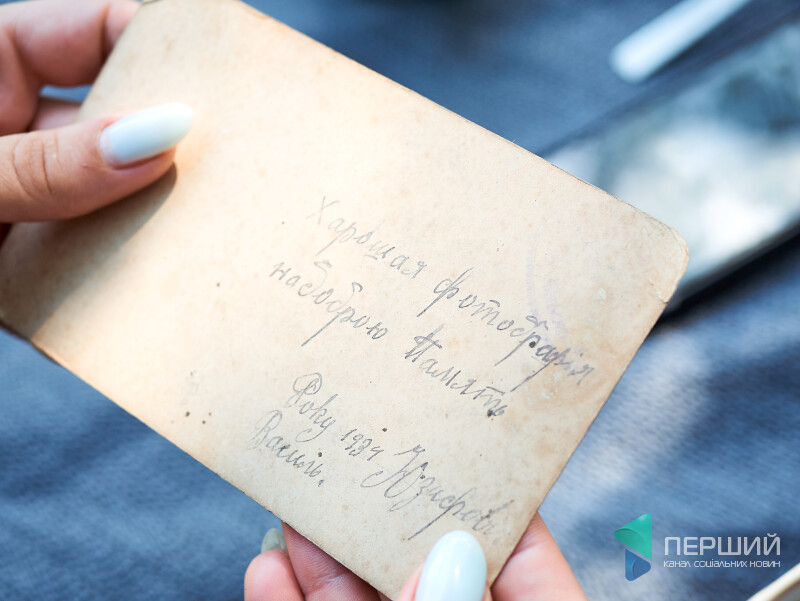 Харошая фотографія
на доброю Память
Року 1934
Василь.
ПЕРШИЙ
КАНАЛ СОЦІАЛЬНИХ НОВИН